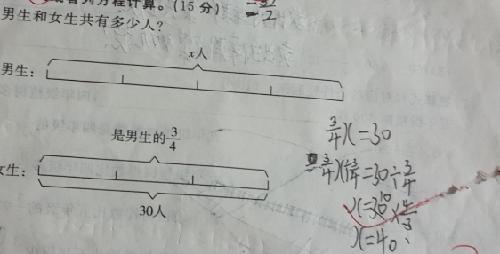 方程计算。(15分)
男生和女生共有多少人?
x人
男生:
是男生的3/4
女生:
30人
3/4x=30
3/4x÷3/4=30÷3/4
x=30×4/3
x=40